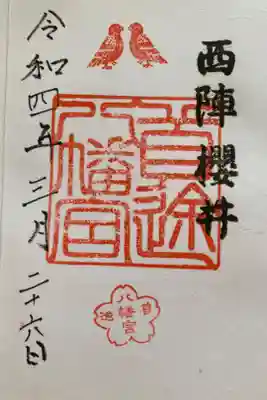 西陣 櫻井
首途
八幡宮
令和四年三月二十六日
首途
八幡宮